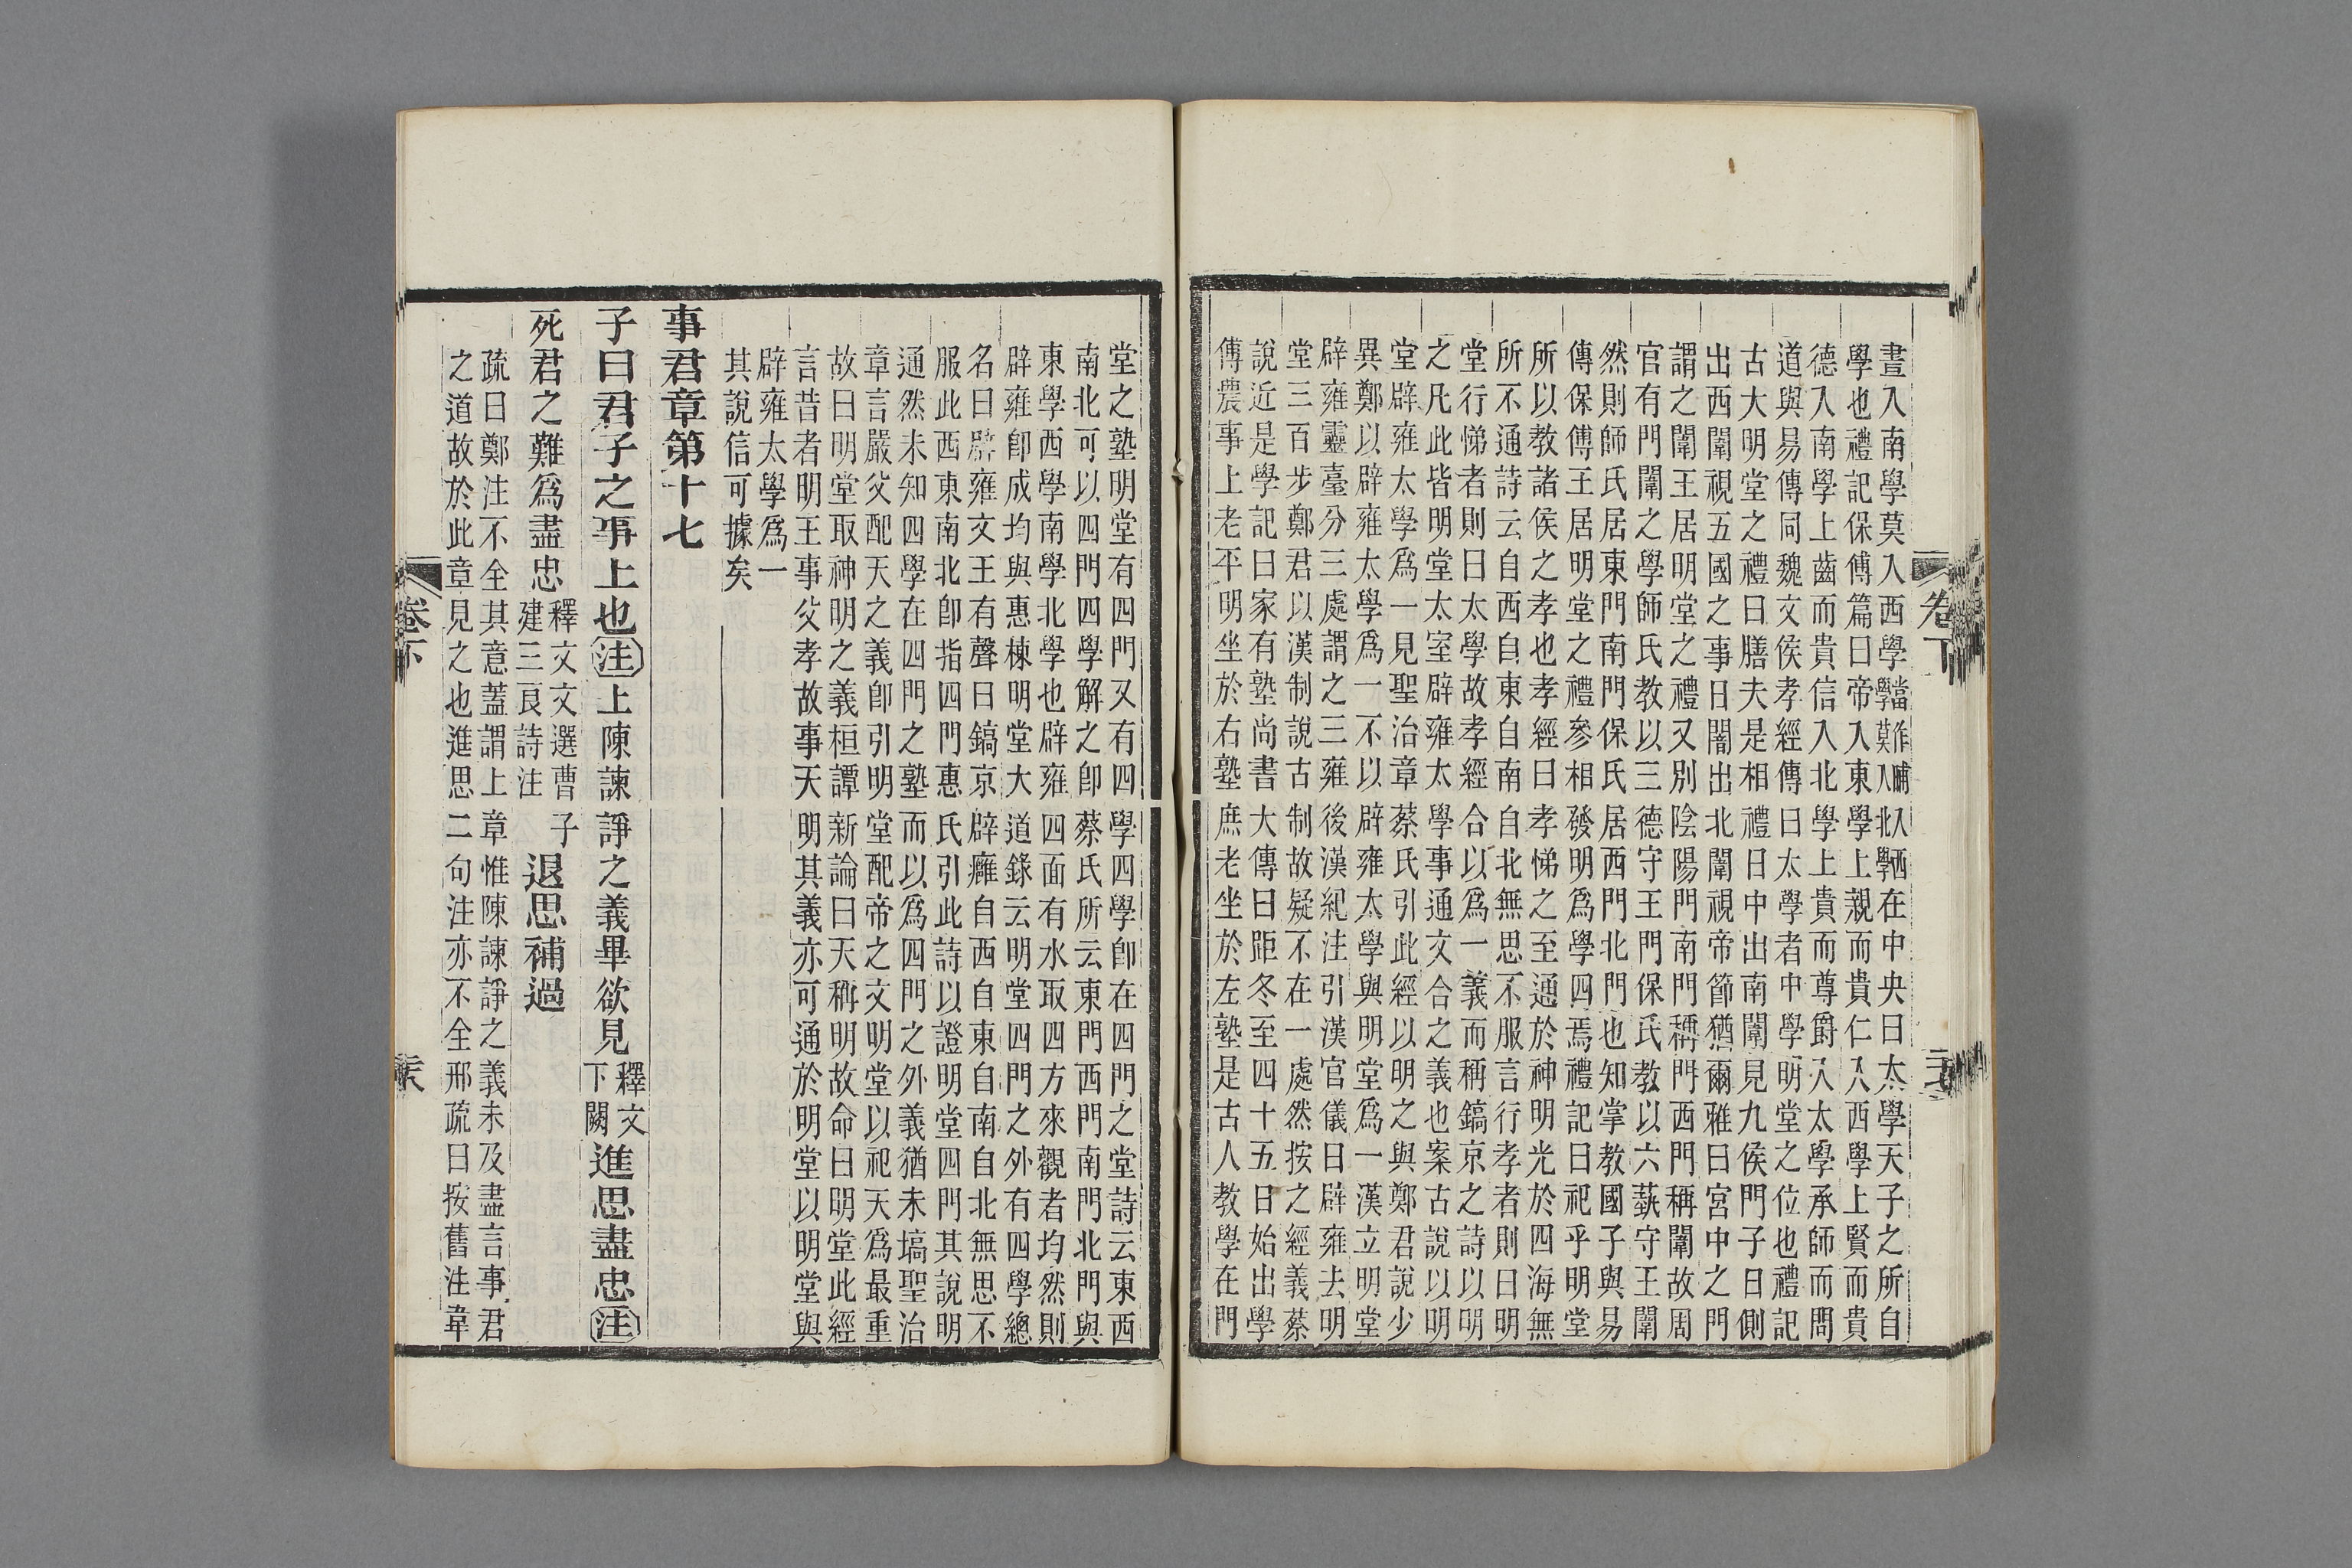 晝入南學莫入西學當作晡入西學莫入北學在中央曰太學天子之所自
學也禮記保傅篇曰帝入東學上親而貴仁入西學上賢而貴
德入南學上齒而貴信入北學上貴而尊爵入太學承師而問
道與易傳同魏文侯孝經傳曰太學者中學明堂之位也禮記
古大明堂之禮曰膳夫是相禮日中出南闈見九侯門子日側
出西闈視五國之事日闇出北闈視帝節猶爾雅曰宮中之門
謂之闈王居明堂之禮又別陰陽門南門稱門西門稱闈故周
官有門闈之學師氏教以三德守王門保氏教以六蓺守王闈
然則師氏居東門南門保氏居西門北門也知掌教國子與易
傳保傅王居明堂之禮參相發明爲學四焉禮記曰祀乎明堂
所以教諸侯之孝也孝經曰孝悌之至通於神明光於四海無
所不通詩云自西自東自南自北無思不服言行孝者則曰明
堂行悌者則曰太學故孝經合以爲一義而稱鎬京之詩以明
之凡此皆明堂太室辟雍太學事通文合之義也案古說以明
堂辟雍太學爲一見聖治章蔡氏引此經以明之與鄭君說少
異鄭以辟雍太學爲一不以辟雍太學與明堂爲一漢立明堂
辟雍靈臺分三處謂之三雍後漢紀注引漢官儀曰辟雍去明
堂三百步鄭君以漢制說古制故疑不在一處然按之經義蔡
說近是學記曰家有塾尚書大傳曰距冬至四十五日始出學
傅農事上老平明坐於右塾庶老坐於左塾是古人教學在門
卷下
堂之塾明堂有四門又有四學四學卽在四門之堂詩云東西
南北可以四門四學解之卽蔡氏所云東門西門南門北門與
東學西學南學北學也辟雍四面有水取四方來觀者均然則
辟雍卽成均與惠棟明堂大道錄云明堂四門之外有四學總
名曰辟雍文王有聲曰鎬京辟廱自西自東自南自北無思不
服此西東南北卽指四門惠氏引此詩以證明堂四門其說明
通然未知四學在四門之塾而以爲四門之外義猶未塙聖治
章言嚴父配天之義卽引明堂配帝之文明堂以祀天爲最重
故曰明堂取神明之義桓譚新論曰天稱明故命曰明堂此經
言昔者明王事父孝故事天明其義亦可通於明堂以明堂與
辟雍太學爲一
其說信可據矣
事君章第十七
子曰君子之事上也注上陳諫諍之義畢欲見釋文下闕進思盡忠注
死君之難爲盡忠釋文文選曹子建三良詩注退思補過
疏曰鄭注不全其意蓋謂上章惟陳諫諍之義未及盡言事君
之道故於此章見之也進思二句注亦不全邢疏曰按舊注韋
卷下